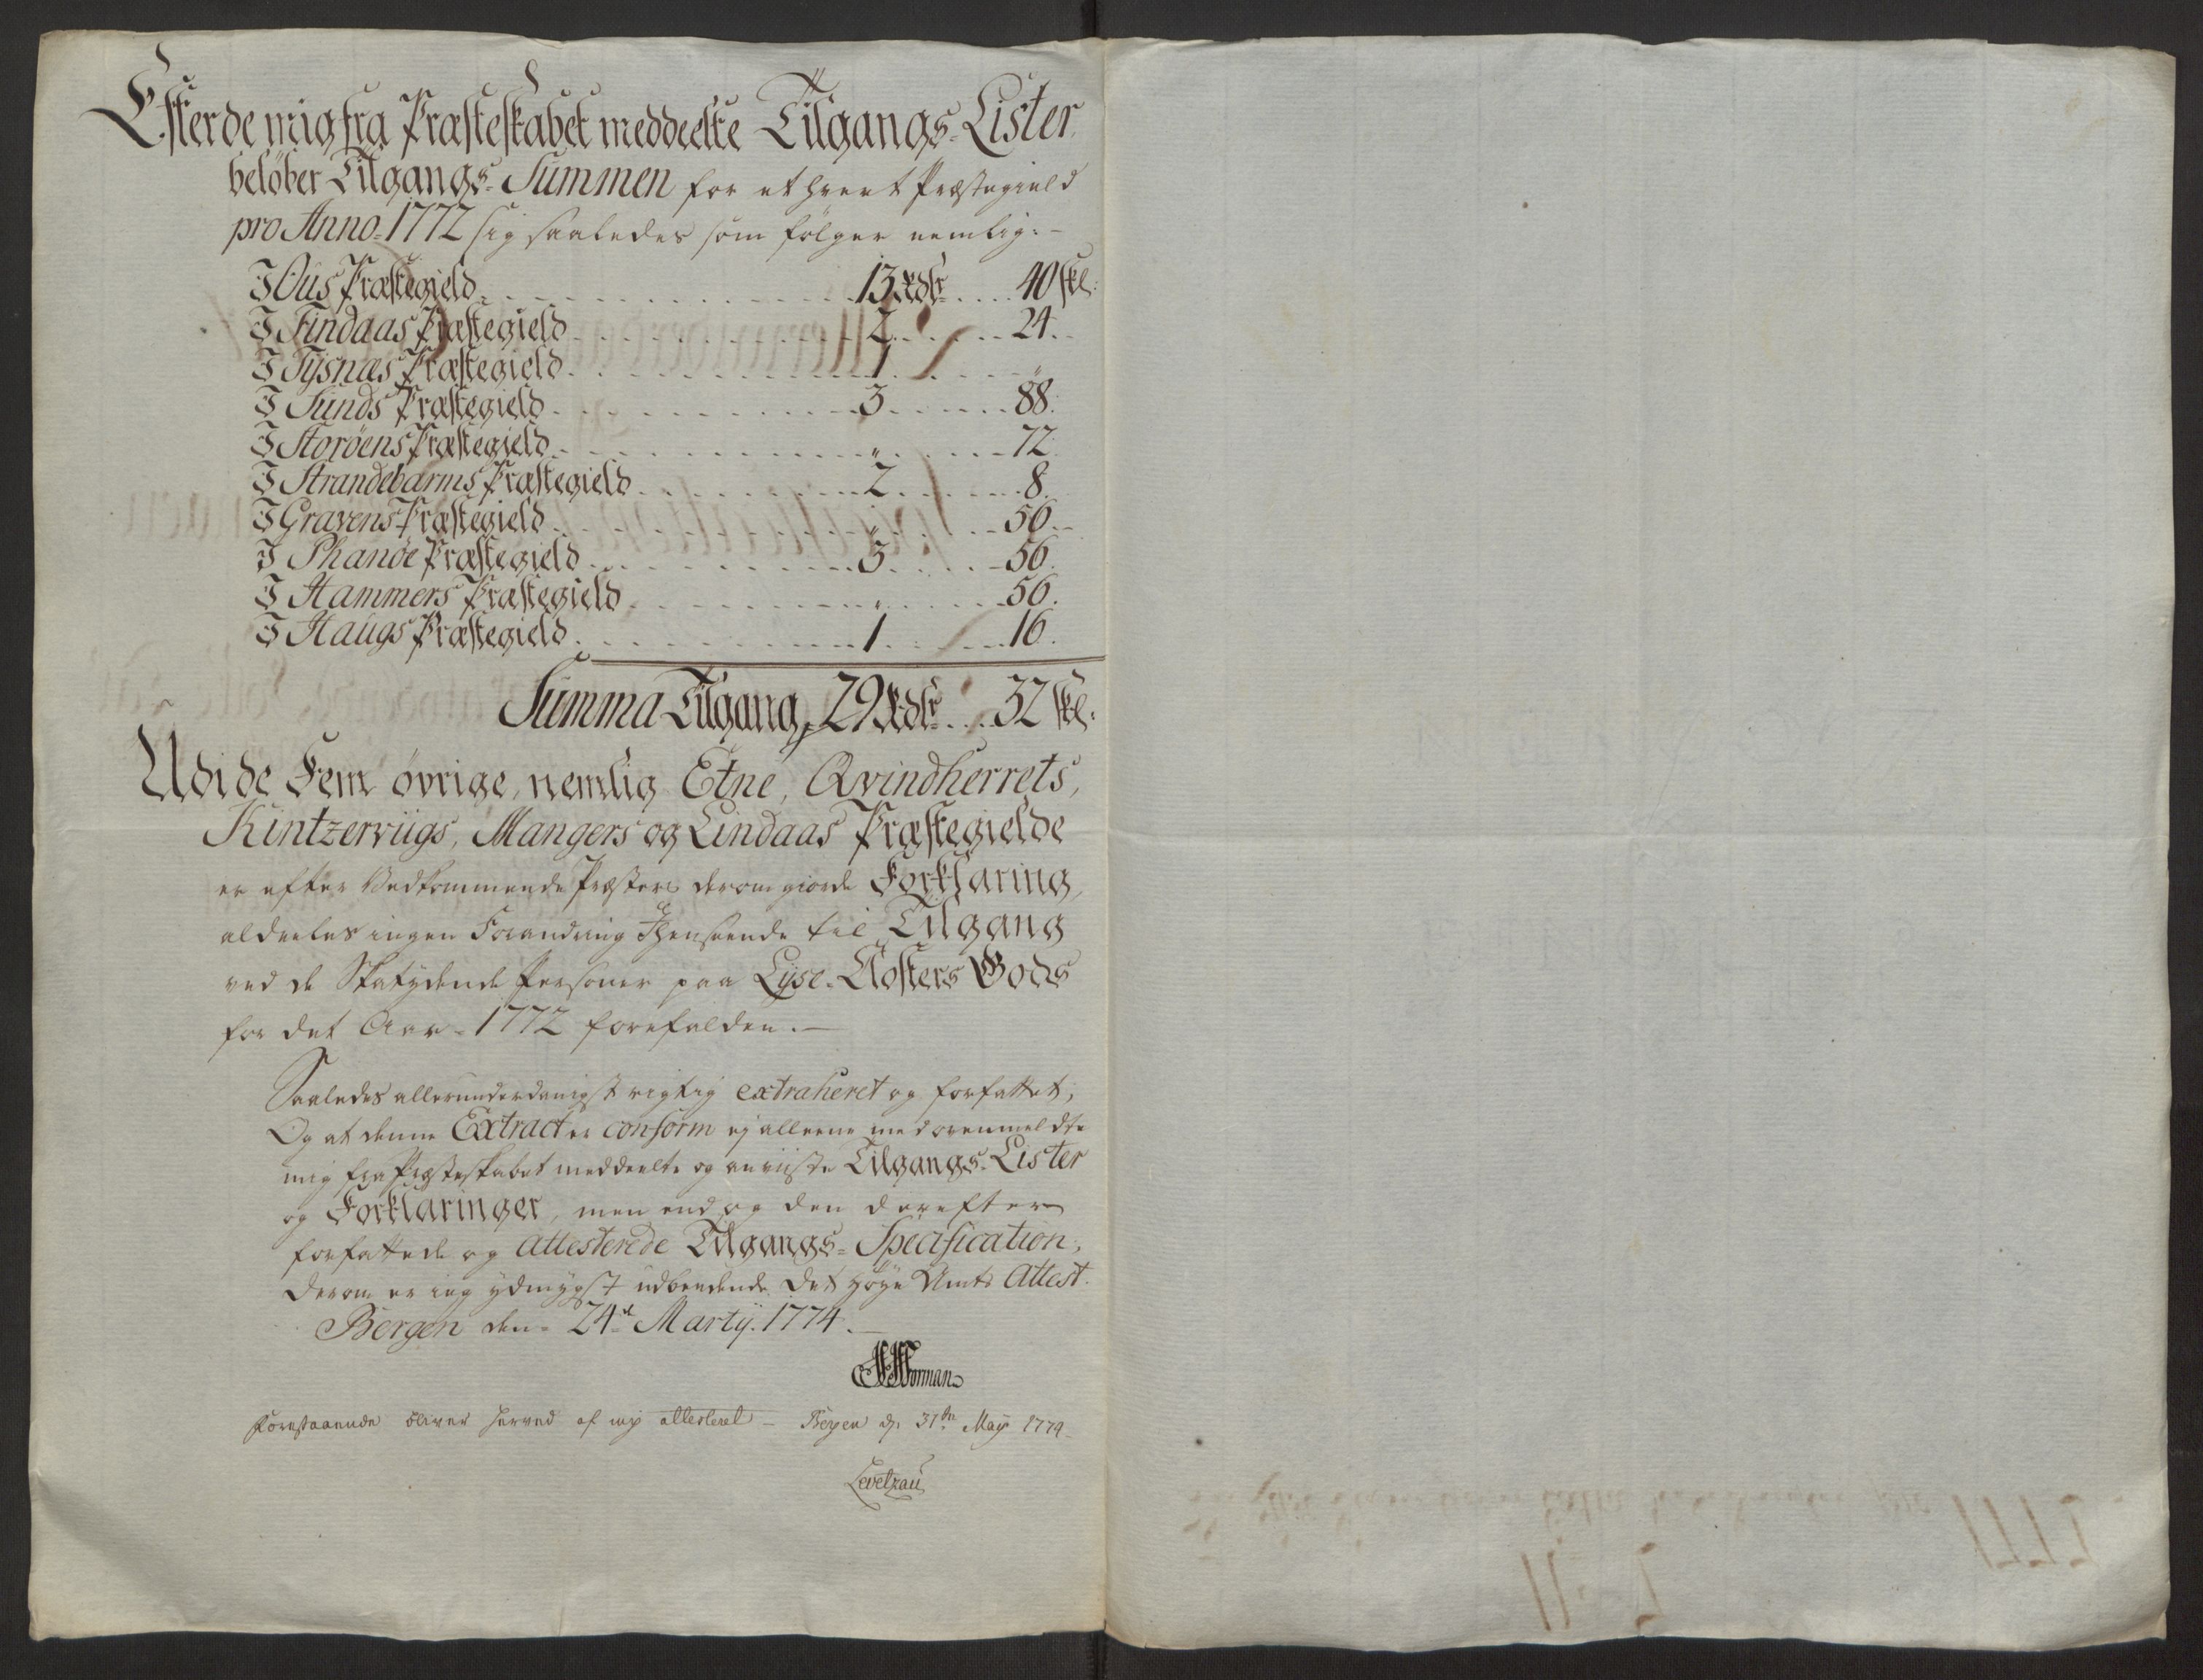 Efter de mig fra Præsteskabet meddeelte Tilgangs-Lister
belöber Tilgangs-Summen for et hvert Præstegield
pro Anno-1772 sig saaledes som følger nemlig:-
I Ous Præstegield 13 Rdlr 40 skl.
I Findaas Præstegield 2 24.
I Tysnæs Præstegield 1 "
I Sunds Præstegield 3 88.
I Storöens Præstegield " 72.
I Strandebarms Præstegield 2 8.
I Gravens Præstegield " 56.
I Phanöe Præstegield 3 56.
I Hammers Præstegield " 56.
I Haugs Præstegield 1 16.
Summa Tilgang, 29 Rdlr 32 skl.
Udi de Fem övrige, nemlig Etne, Qvindherrets,
Kintzerviigs, Mangers og Lindaas Præstegielde
er efter Vedkommende Præsters derom giorde Forklaring,
aldeeles ingen Forandring Henseende til Tilgang
ved de Skatydende Personer paa Lyse-Closters Gods
for det Aar-1772 forefalden.-
Saaledes allerunderdanigst rigtig extraheret og forfattet,
Og at denne Extract er conform ej alleene med ovenmeldte
mig fra Præsteskabet meddeelte og anviiste Tilgangs-Lister
og Forklaringer, men end og den derefter
forfattede og attesterede Tilgangs-Specification,
derom er ieg ydmygst udbedende det Høye Amts Attest.
Bergen den-24de Martij.1774.
Forestaaende bliver herved af mig attesteret - Bergen d. 31te Maÿ 1774.
Levetzau